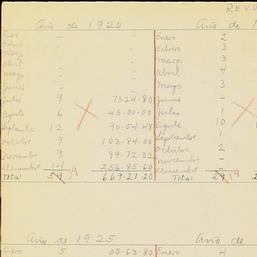 REVI
Año de 1924
Año de 1
Enero - -
Enero 2
Febrero - -
Febrero 3
Marzo - -
Marzo 3
Abril - -
Abril 4
Mayo - -
Mayo 3
Junio - -
Junio -
Julio 9 73-24-80
Julio 1
Agosto 6 45-00-00
Agosto 10
Septiembre 12 90-54-48
Septiembre 1
Octubre 9
Octubre 2
Noviembre 9 99-72-32
Noviembre -
Diciembre 14 256-85-60
Diciembre -
Total 59 669-21-20
Total 29
Año de 1925
Año de
Enero 5 50-63-80
Enero 4